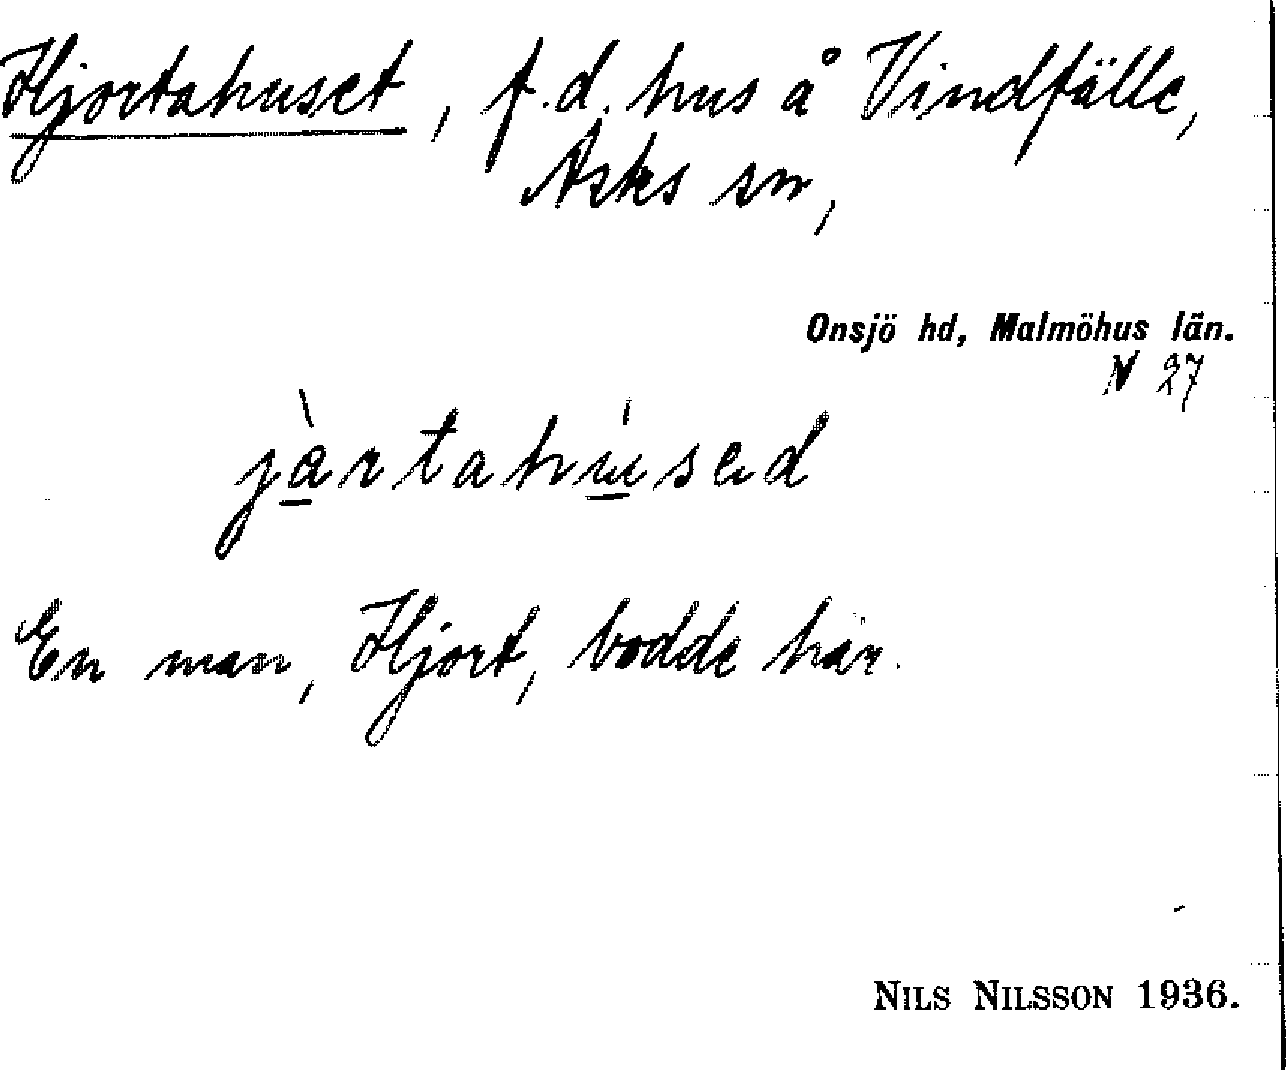 Hjortahuset, f.d. hus å Vindfälle,
Asks sn,
Onsjö hd, Malmöhus län.
N 27
jàrtahúsed
En man, Hjort, bodde här.
NILS NILSSON 1936.